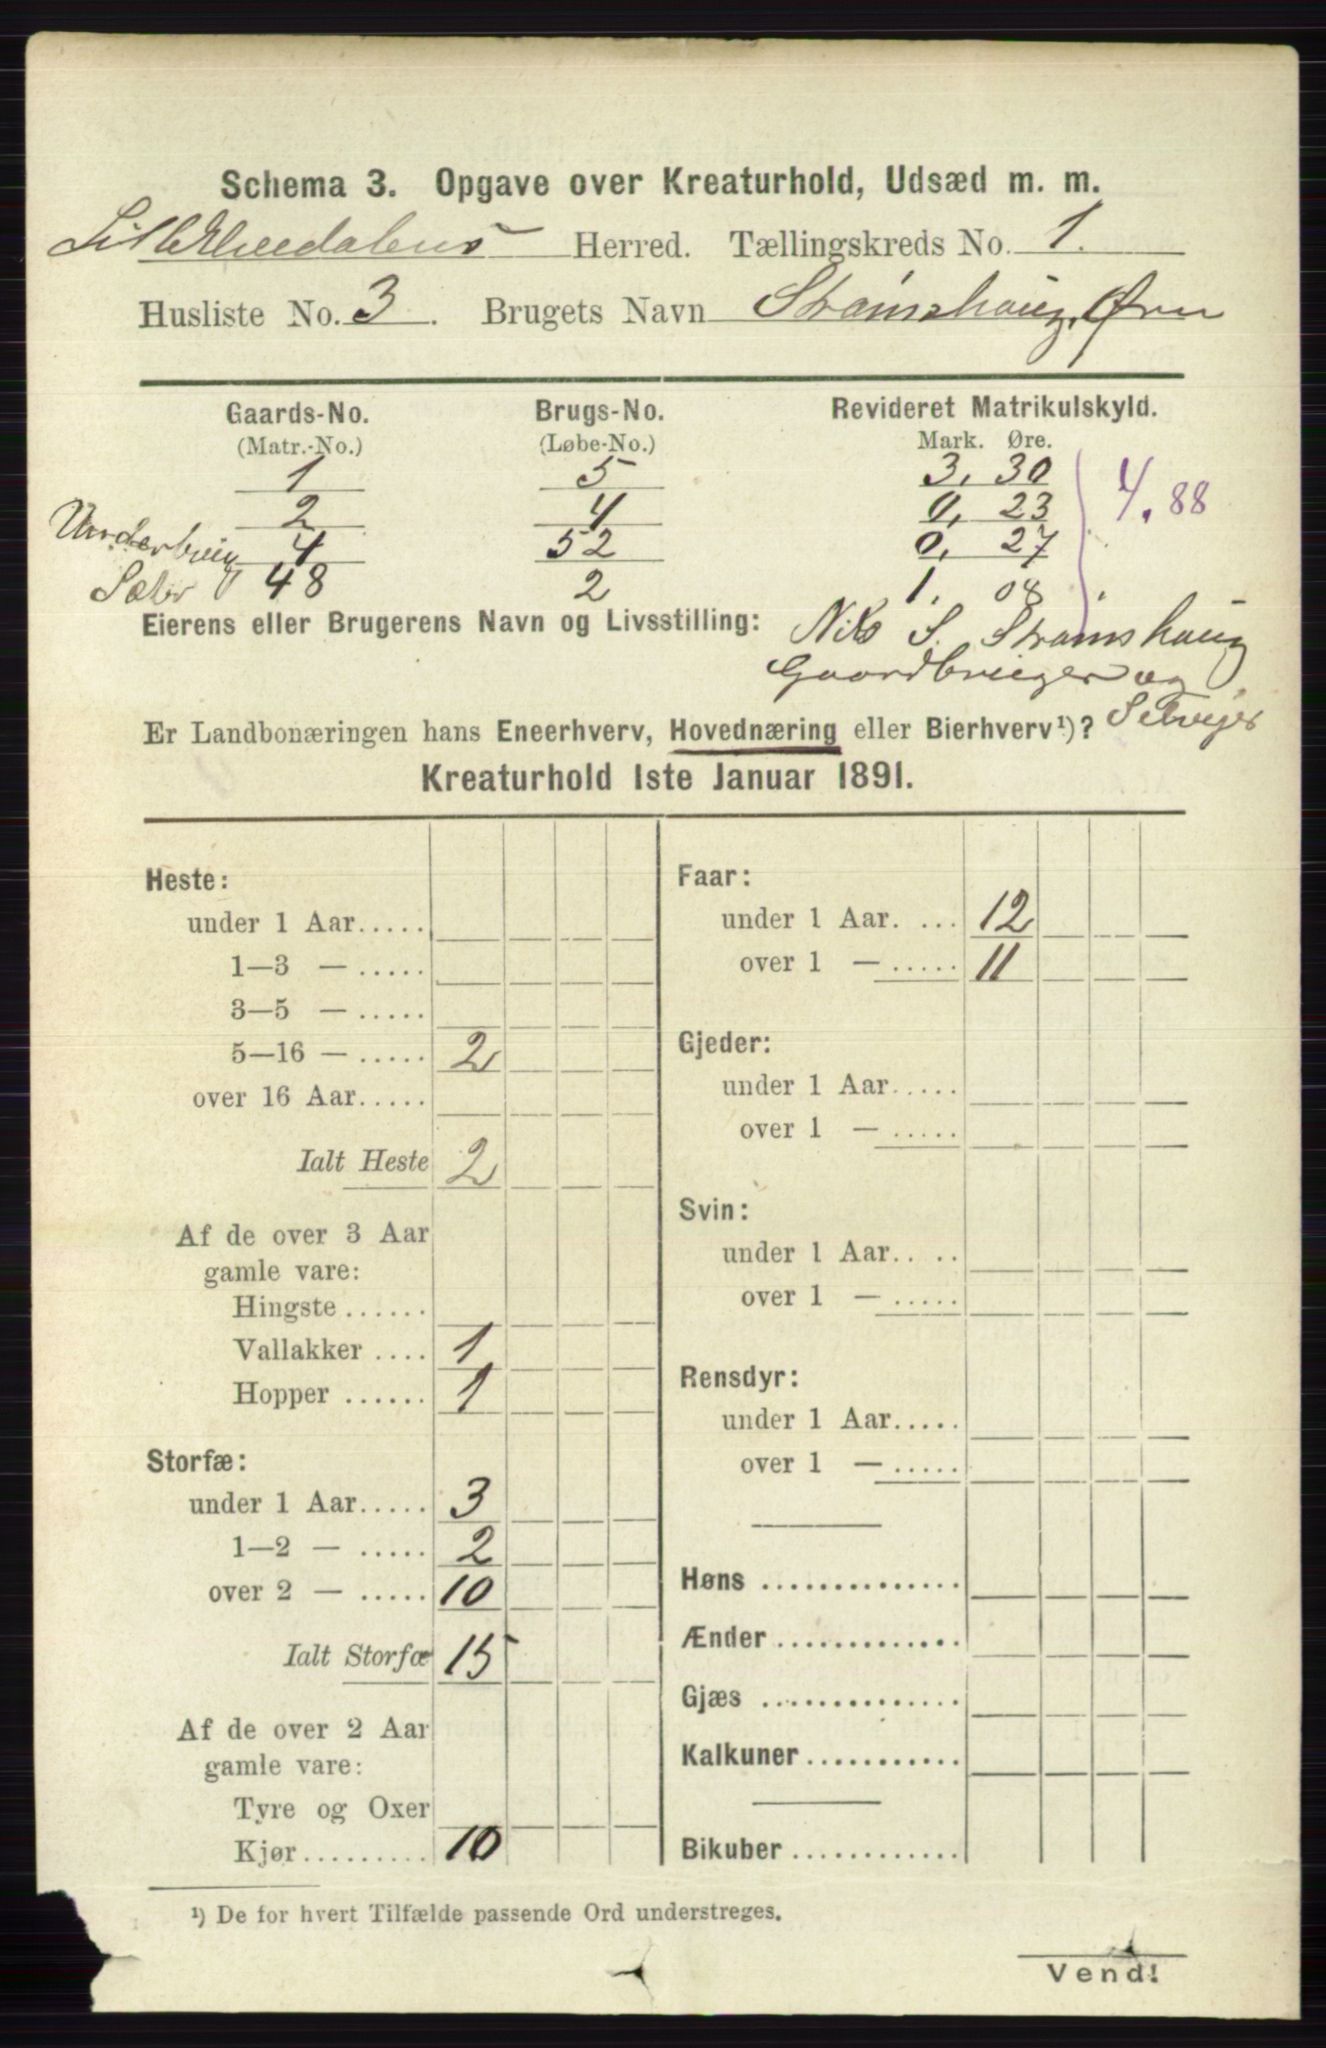 Schema 3. Opgave over Kreaturhold, Udsæd m. m.
Lille Elvedalens Herred. Tællingskreds No. 1.
Husliste No. 3. Brugets Navn Strømshaug, Øvre
Gaards-No. Brugs-No. Revideret Matrikulskyld.
(Matr.-No.) (Løbe-No.) Mark. Øre.
1 5 3, 30
2 4 0, 23 4.88
Underbrug 4 52 0, 27
Sæter 48 2 1. 08
Eierens eller Brugerens Navn og Livsstilling: Nils S. Strømshaug
Gaardbruger og
Er Landbonæringen hans Eneerhverv, Hovednæring eller Bierhverv¹)? Selveier
Kreaturhold 1ste Januar 1891.
Heste:
under 1 Aar.....
1—3 — .....
3—5 — .....
5—16 — ..... 2
over 16 Aar.....
Ialt Heste 2
Af de over 3 Aar
gamle vare:
Hingste ......
Vallakker .... 1
Hopper ...... 1
Storfæ:
under 1 Aar..... 3
1—2 — ..... 2
over 2 — ..... 10
Ialt Storfæ 15
Af de over 2 Aar
gamle vare:
Tyre og Oxer
Kjør......... 10
Faar:
under 1 Aar. ... 12
over 1 — ..... 11
Gjeder:
under 1 Aar.....
over 1 — .....
Svin:
under 1 Aar.. ..
over 1 — .....
Rensdyr:
under 1 Aar.....
over 1 — .....
Høns ..............
Ænder .............
Gjæs ..............
Kalkuner ...........
Bikuber ............
¹) De for hvert Tilfælde passende Ord understreges.
Vend!